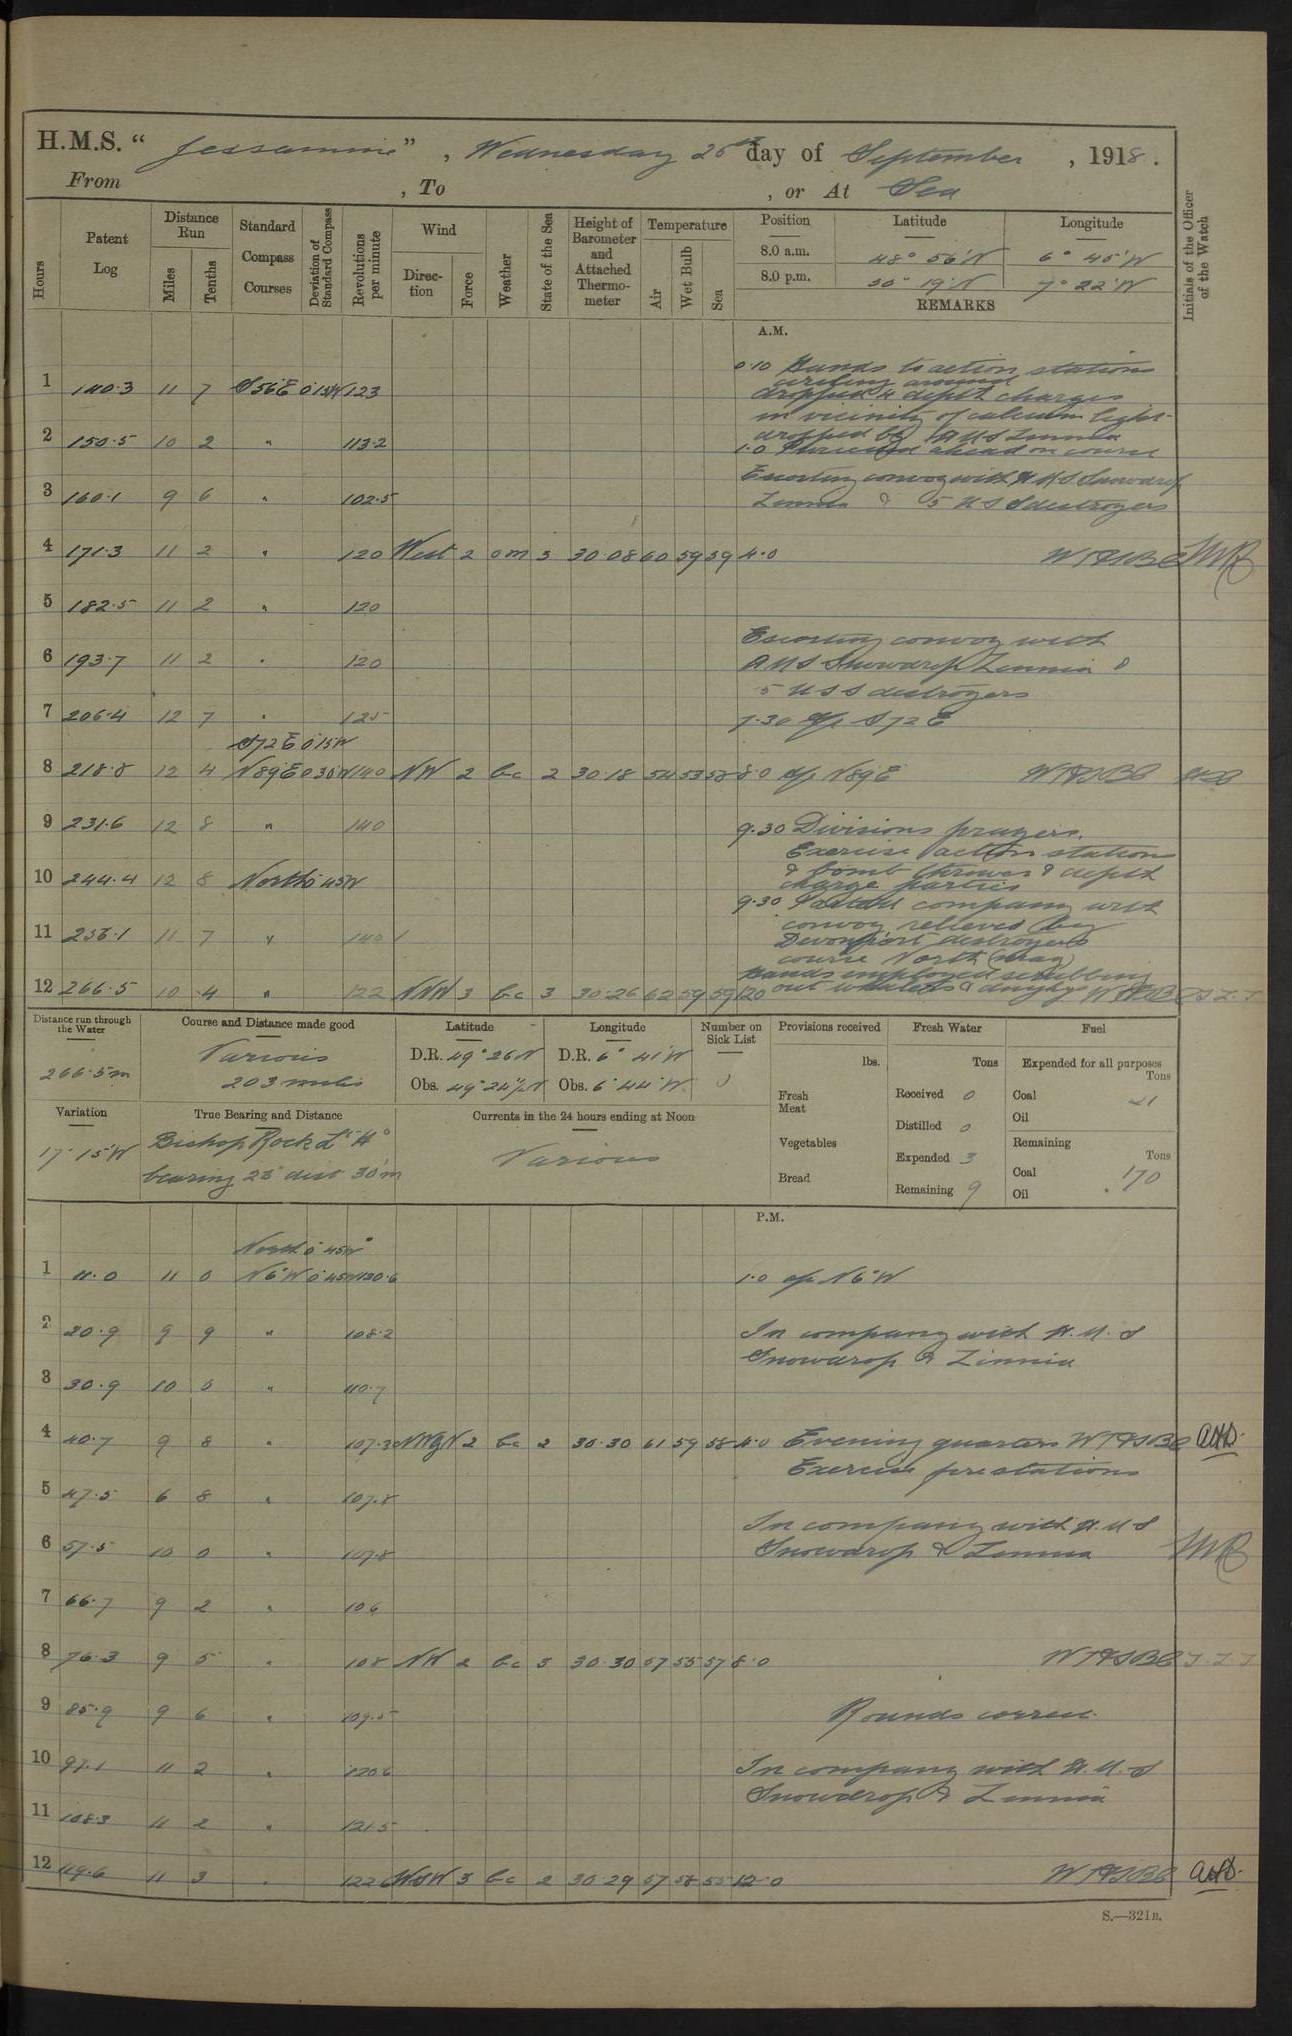 H.M.S. “ Jessamine ” , Wednesday 25th day of September , 1918 .
From , To , or At Sea
Hours
Patent Log
Distance Run
Miles
Tenths
Standard Compass Courses
Deviation of Standard Compass
Revolutions per minute
Wind
Direc-tion
Force
Weather
State of the Sea
Height of Barometer and Attached Thermo-meter
Temperature
Air
Wet Bulb
Sea
Position Latitude Longitude
8.0 a.m. 48° 56'N 6° 45'W
8.0 p.m. 50° 19'N 7° 22'W
REMARKS
Initials of the Officer of the Watch
A.M.
0·10 Hands to action stations
circling around
dropped 4 depth charges
1 140·3 11 7 S56°E 0°15W 123
in vicinity of calcium light
dropped by HMS Zinnia
2 150·5 10 2 " 113·2
1·0 Proceeded ahead on course
Escorting convoy with HMS Snowdrop
3 160·1 9 6 " 102·5
Zinnia & 5 USS destroyers
4 171·3 11 2 " 120 West 2 om 3 30·08 60 59 59 4·0
5 182·5 11 2 " 120
Escorting convoy with
6 193·7 11 2 " 120
HMS Snowdrop Zinnia &
5 USS destroyers
7 206·4 12 7 " 125
7·30 a/c S72E
S72E 0°15W
8 218·8 12 4 N89E 0°30W 140 NW 2 bc 2 30·18 54 53 58 8·0 a/c N89E
9 231·6 12 8 " 140
9·30 Divisions prayers.
Exercise action stations
& bomb thrower & depth
charge parties
10 244·4 12 8 North 0°45W
9·30 Parted company with
convoy relieved by
11 256·1 11 7 " 140
Devonport destroyers
course North (mag)
Hands employed scrubbing
12 266·5 10 4 " 122 NNW 3 bc 3 30·26 62 59 59 12·0 out whalers & dinghys
Distance run through the Water
266·5m
Course and Distance made good
Various
203 miles
Latitude
D.R. 49° 26N
Obs. 49° 24½N
Longitude
D.R. 6° 41'W
Obs. 6° 44'W
Number on Sick List
0
Provisions received
lbs.
Fresh Meat
Vegetables
Bread
Fresh Water
Tons
Received 0
Distilled 0
Expended 3
Remaining 9
Fuel
Expended for all purposes
Tons
Coal 21
Oil
Remaining
Tons
Coal 170
Oil
Variation
17° 15'W
True Bearing and Distance
Bishop Rock Lt Ho
bearing 23° dist 30'm
Currents in the 24 hours ending at Noon
Various
P.M.
North 0°45W
1 11·0 11 0 N6°W 0°45W 130·6 1·0 a/c N6°W
2 20·9 9 9 " 108·2 In company with H.M.S
Snowdrop & Zinnia
3 30·9 10 0 " 110·7
4 40·7 9 8 " 107·3 NWbyN 2 bc 2 30·30 61 59 58 4·0 Evening quarters
Exercise fire stations
5 47·5 6 8 " 107·8
In company with H.M.S
6 57·5 10 0 " 107·8 Snowdrop & Zinnia
7 66·7 9 2 " 106
8 76·3 9 5 " 108 NW 2 bc 3 30·30 57 55 57 8·0
9 85·9 9 6 " 109·5 Rounds correct
10 97·1 11 2 " 120·6 In company with H.M.S
Snowdrop & Zinnia
11 108·3 11 2 " 121·5
12 119·6 11 3 " 122 WSW 3 bc 2 30·29 57 58 55 12·0
S.—321B.